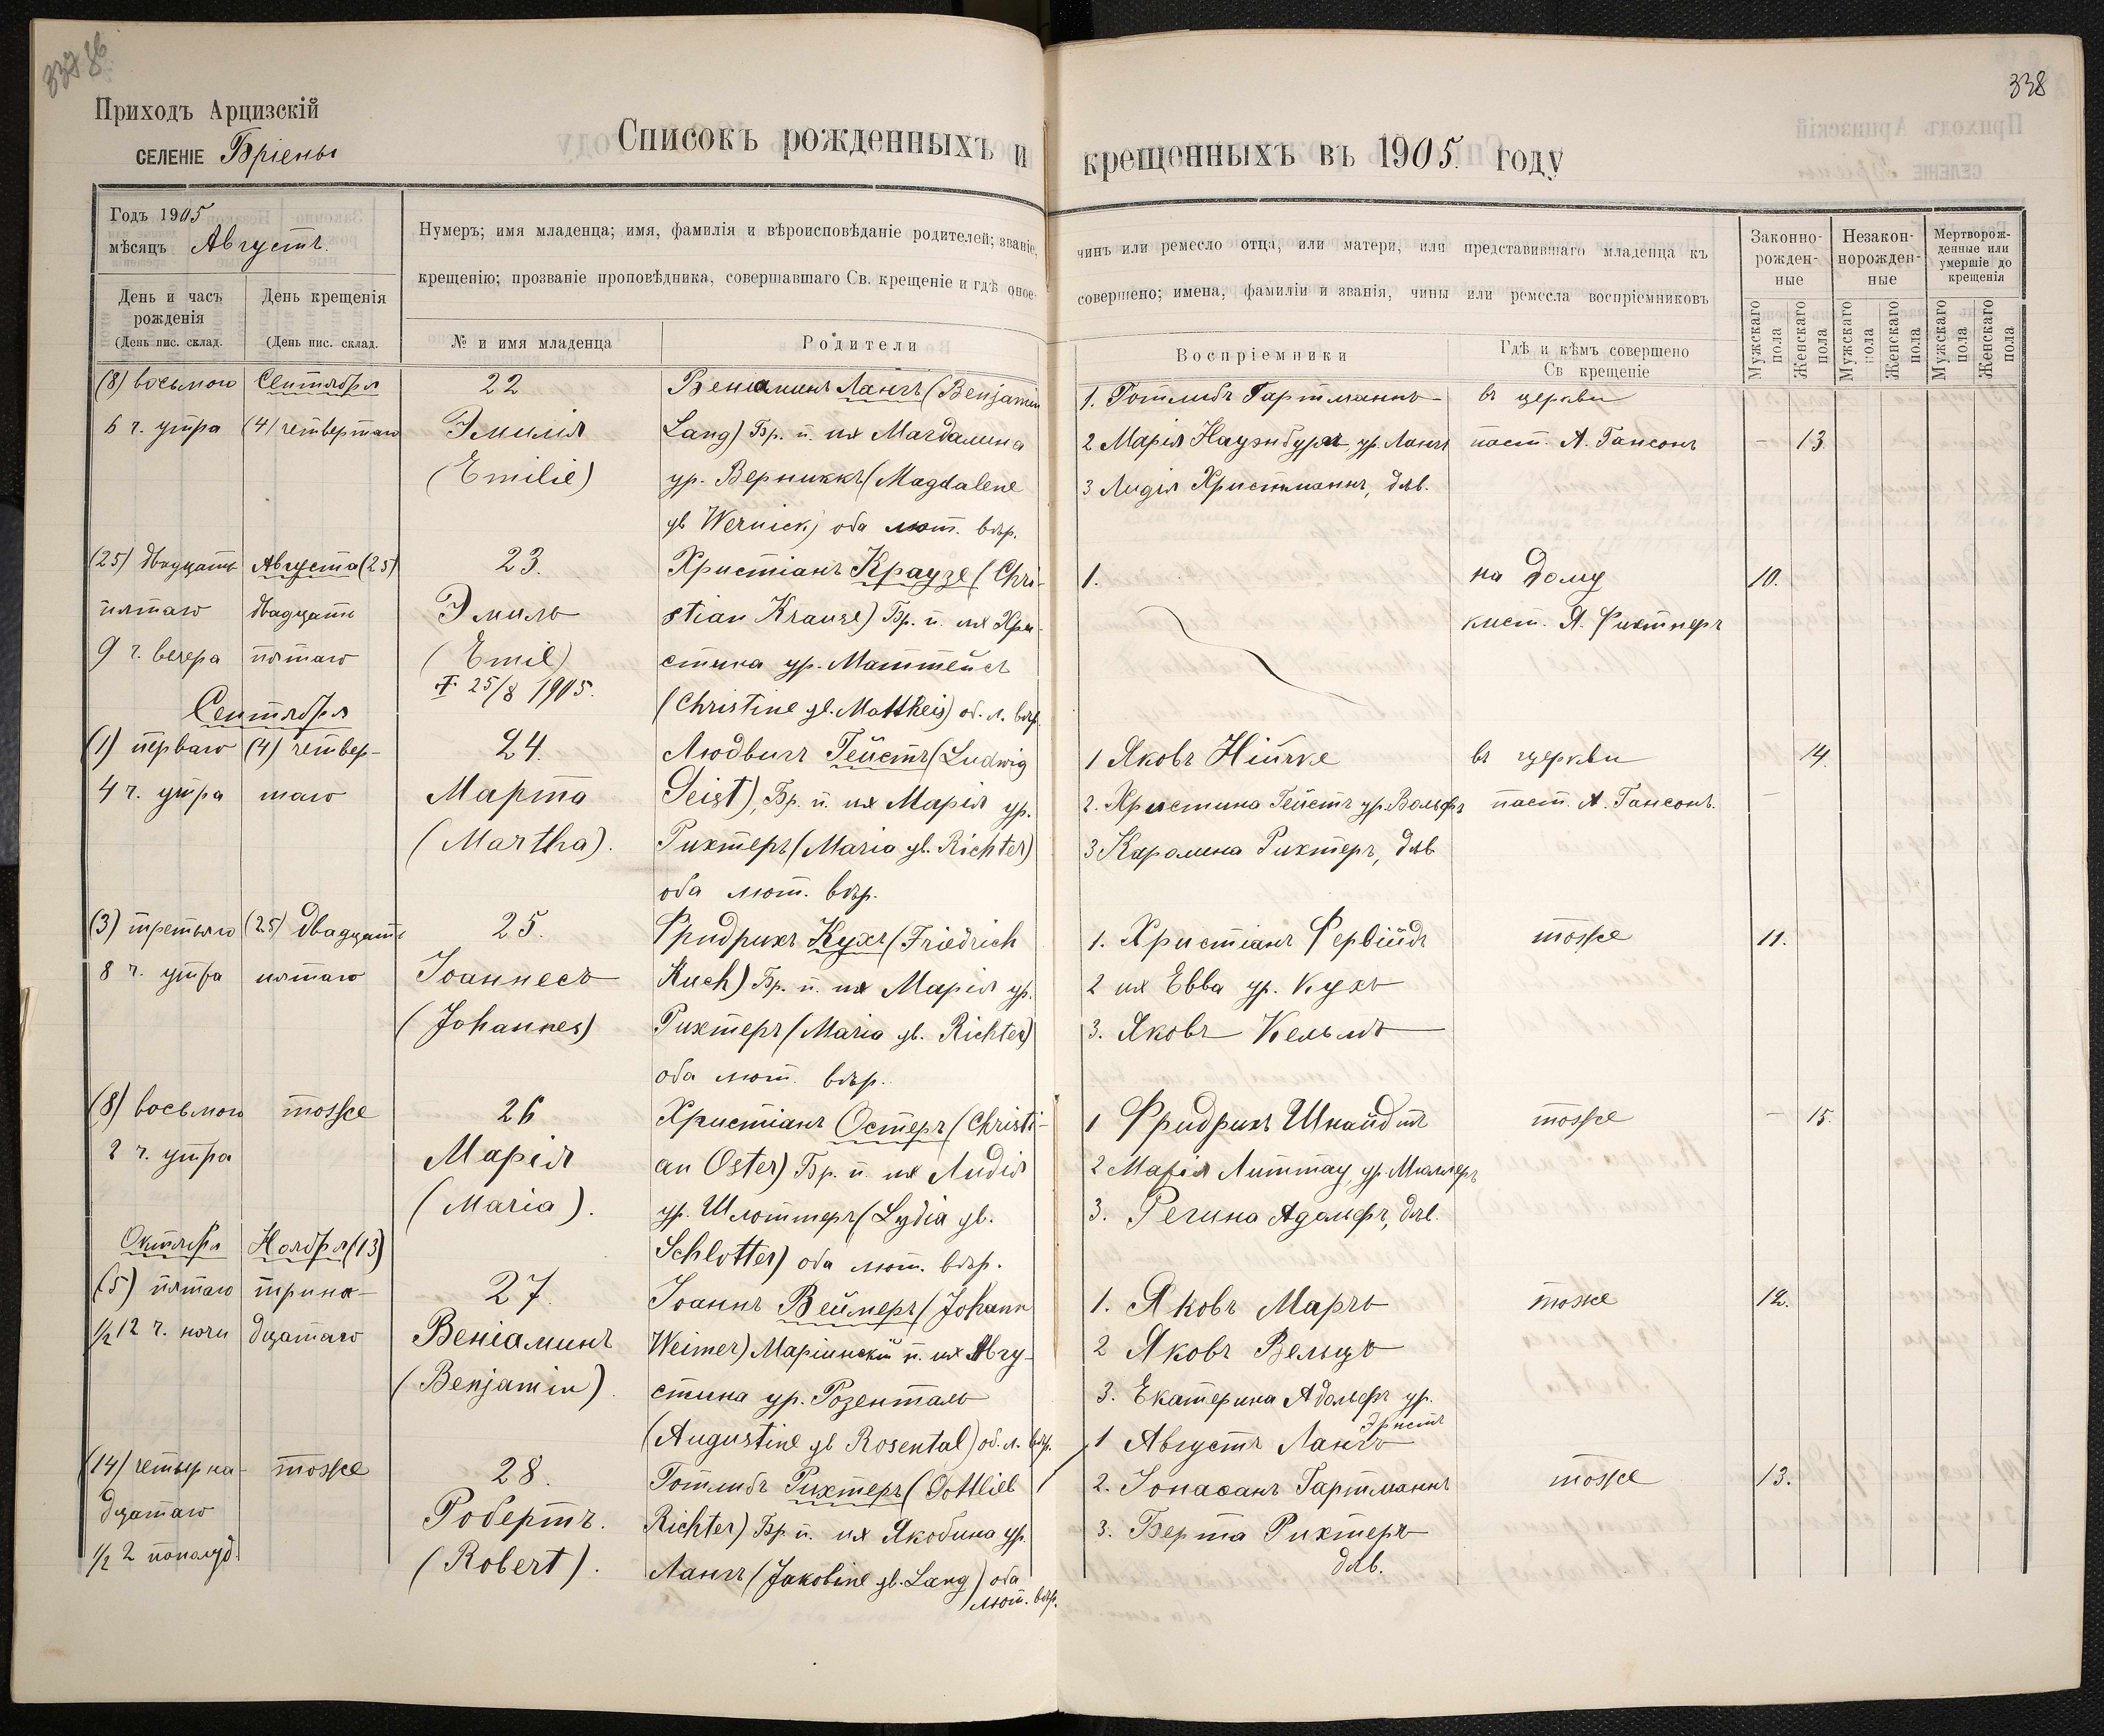 337 86
338
Приходъ Арцизскій
СЕЛЕНІЕ Бріены
Списокъ рожденныхъ и крещенныхъ въ 1905. году
Годъ 1905
мѣсяцъ Августъ.
День и часъ рожденія
(День пис. склад.
День крещенія
(День пис. склад.
Нумеръ; имя младенца; имя, фамилія и вѣроисповѣданіе родителей; званіе, чинъ или ремесло отца, или матери, или представившаго младенца къ
крещенію; прозваніе проповѣдника, совершавшаго Св. крещеніе и гдѣ оное совершено; имена, фамиліи и званія, чины или ремесла воспріемниковъ
№ и имя младенца
Родители
Воспріемники
Гдѣ и кѣмъ совершено
Св крещеніе
Законно-
рожден-
ные
Незакон-
норожден-
ные
Мертворож-
денные или
умершіе до
крещенія
Мужскаго пола
Женскаго пола
Мужскаго пола
Женскаго пола
Мужскаго пола
Женскаго пола
(8) восьмого
6 ч. утра
Сентября
(4) четвертаго
22
Эмилія
(Emilie)
Веніаминъ Лангъ (Benjamin
Lang) Бр. п. их Магдалина
ур. Верниккъ (Magdalene
gb Wernick) оба лют. вѣр.
1. Готлибъ Гартманнъ
2 Марія Наузнбургъ, ур. Лангъ
3. Лидія Христманнъ, дѣв.
въ церкви
паст. А. Гансонъ
- 13.
(25) двадцать
пятаго
9 ч. вечера
Августа (25)
двадцать
пятаго
23.
Эмиль
(Emil)
† 25/8 1905.
Христіанъ Краузе (Chri-
stian Krause) Бр. п. их Хри-
стина ур. Маттейсъ
(Christine gb. Mattheis) об. л. вѣр.
1.
на дому
кист. Я. Фихтнеръ
10.
Сентября
(1) перваго
4 ч. утра
(4) четвер-
таго
24.
Марта
(Martha).
Людвигъ Гейстъ (Ludwig
Geist), Бр. п. их Марія ур.
Рихтеръ (Maria gb. Richter)
оба лют. вѣр.
1 Яковъ Ніцке
2. Христина Гейстъ ур. Вольфъ
3 Каролина Рихтеръ, дѣв
въ церкви
паст. А. Гансонъ.
- 14.
(3) третьяго
8 ч. утра
(25) двадцать
пятаго
25.
Іоаннесъ
(Johannes)
Фридрихъ Кухъ (Friedrich
Kuch) Бр. п. их Марія ур.
Рихтеръ (Maria gb. Richter)
оба лют. вѣр.
1. Христіанъ Фервійдъ
2 их Евва ур. Кухъ
3. Яковъ Кельмъ
тоже
11.
(8) восьмого
2 ч. утра
тоже
26
Марія
(Maria).
Христіанъ Остеръ (Christi-
an Oster) Бр. п. их Лидія
ур. Шлоттеръ (Lydia gb.
Schlotter) оба лют. вѣр.
1 Фридрихъ Шнайдтъ
2 Марія Литтау, ур. Мюллеръ
3. Регина Адольфъ, дѣв.
тоже
- 15.
Октября
(5) пятаго
1/2 12 ч. ночи
Ноября (13)
трина-
дцатаго
27.
Веніаминъ
(Benjamin).
Іоаннъ Веймеръ (Johann
Weimer) Маріинскій п. их Авгу-
стина ур. Розенталь
(Augustine gb Rosental) об. л. вѣр.
1. Яковъ Марчъ
2 Яковъ Вельцъ
3. Екатерина Адольфъ ур.
Эрнстъ
тоже
12.
(14) четырна-
дцатаго
1/2 2 пополуд.
тоже
28.
Робертъ.
(Robert).
Готлибъ Рихтеръ (Gottlieb
Richter) Бр. п. их Якобина ур.
Лангъ (Jakobine gb. Lang) оба
лют. вѣр.
1 Августъ Лангъ
2. Іонаѳанъ Гартманнъ
3. Берта Рихтеръ
дѣв.
тоже
13.